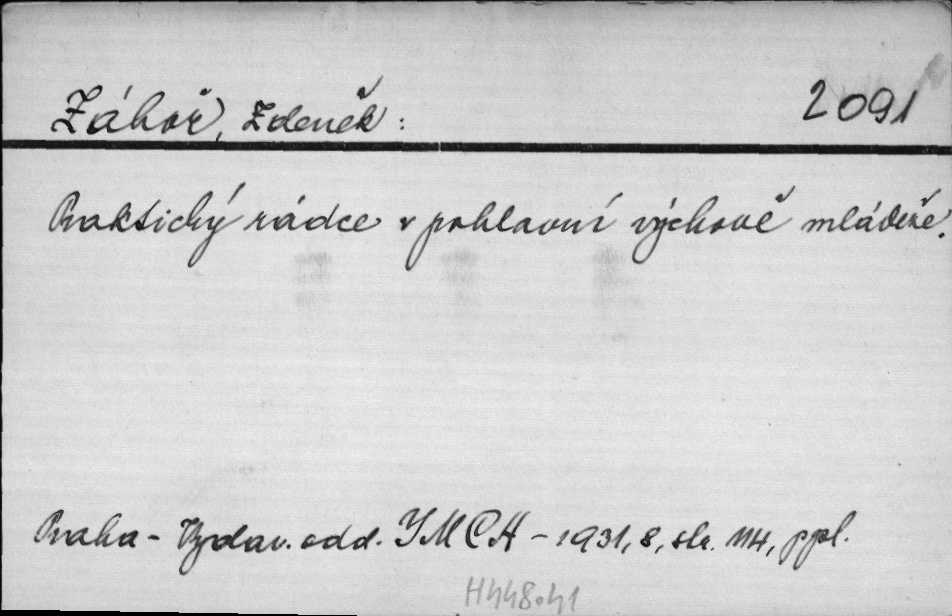 Záhoř, Zdeněk: 2091
Praktický rádce v pohlavní výchově mládeže.
Praha - Vydav. odd. YMCA - 1931, 8, str. 114, ppl.
H448.41